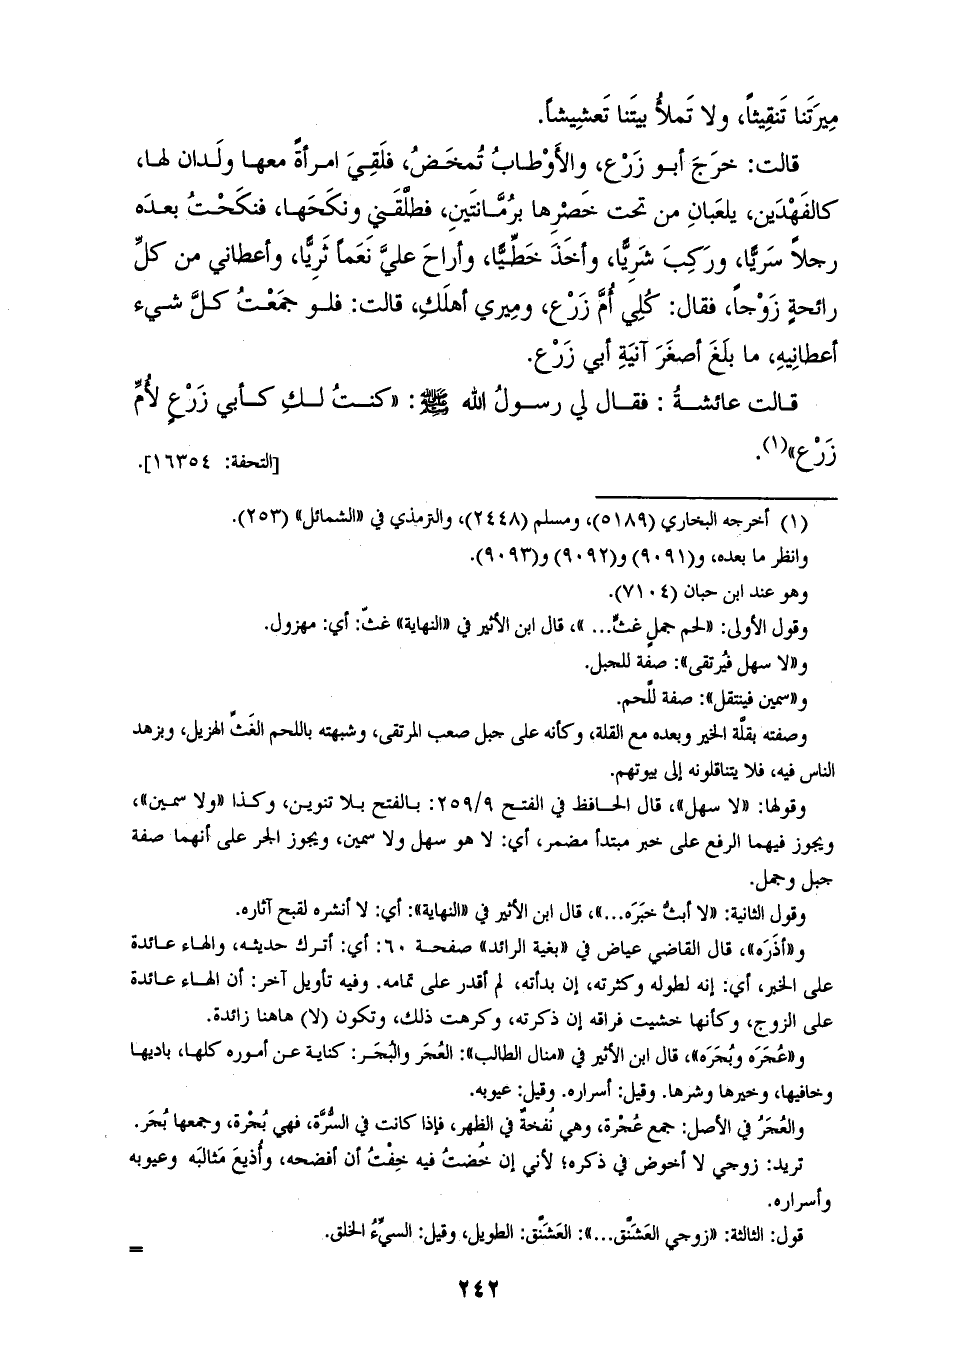 مِيرَتَنا تَنقِيثاً، ولا تَملأُ بيتَنا تَعشيشاً.
قالت: خرَجَ أبو زَرْع، والأَوْطابُ تُمخَضُ، فلَقِيَ امرأةً معها ولَدان لها،
كالفَهْدَين، يلعَبانِ من تحت خَصْرِها برُمَّانتَينِ، فطلَّقَني ونكَحَها، فنكَحْتُ بعدَه
رجلاً سَرِيًّا، ورَكِبَ شَرِيًّا، وأخَذَ خَطِّيًّا، وأراحَ عليَّ نَعَماً ثَرِيًّا، وأعطاني من كلِّ
رائحةٍ زَوْجاً، فقال: كُلِي أُمَّ زَرْع، ومِيري أهلَكِ، قالت: فلو جمَعْتُ كلَّ شيء
أعطانِيهِ، ما بلَغَ أصغَرَ آنيَةِ أبي زَرْع.
قالت عائشةُ : فقال لي رسولُ الله ﷺ: «كنتُ لكِ كأبي زَرْعٍ لأُمِّ
زَرْع»(١).
[التحفة: ١٦٣٥٤].
(١) أخرجه البخاري (٥١٨٩)، ومسلم (٢٤٤٨)، والترمذي في «الشمائل» (٢٥٣).
وانظر ما بعده، و(٩٠٩١) و(٩٠٩٢) و(٩٠٩٣).
وهو عند ابن حبان (٧١٠٤).
وقول الأولى: «لحم جملٍ غثٌّ... »، قال ابن الأثير في «النهاية» غثّ: أي: مهزول.
و«لا سهل فيُرتقى»: صفة للجبل.
و«سمين فينتقل»: صفة للَّحم.
وصفته بقلَّة الخير وبعده مع القلة، وكأنه على جبل صعب المرتقى، وشبهته باللحم الغَثِّ الهزيل، ويزهد
الناس فيه، فلا يتناقلونه إلى بيوتهم.
وقولها: «لا سهل»، قال الحافظ في الفتح ٢٥٩/٩: بالفتح بلا تنوين، وكذا «ولا سمين»،
ويجوز فيهما الرفع على خبر مبتدأ مضمر، أي: لا هو سهل ولا سمين، ويجوز الجر على أنهما صفة
جبل وجمل.
وقول الثانية: «لا أبثُّ خبَرَه...»، قال ابن الأثير في «النهاية»: أي: لا أنشره لقبح آثاره.
و«أذَرَه»، قال القاضي عياض في «بغية الرائد» صفحة ٦٠: أي: أترك حديثه، والهاء عائدة
على الخبر، أي: إنه لطوله وكثرته، إن بدأته، لم أقدر على تمامه. وفيه تأويل آخر: أن الهاء عائدة
على الزوج، وكأنها خشيت فراقه إن ذكرته، وكرهت ذلك، وتكون (لا) هاهنا زائدة.
و«عُجَرَه وبُجَرَه»، قال ابن الأثير في «منال الطالب»: العُجَر والبُجَر: كناية عن أموره كلها، باديها
وخافيها، وخيرها وشرها. وقيل: أسراره. وقيل: عيوبه.
والعُجَرُ في الأصل: جمع عُجْرة، وهي نُفخةٌ في الظهر، فإذا كانت في السُّرَّة، فهي بُجْرة، وجمعها بُجَر.
تريد: زوجي لا أخوض في ذكره؛ لأني إن خُضتُ فيه خِفْتُ أن أفضحه، وأُذيعَ مَثالبَه وعيوبه
وأسراره.
قول: الثالثة: «زوجي العَشنَّق...»: العَشنَّق: الطويل، وقيل: السيِّءُ الخلق.
=
٢٤٢